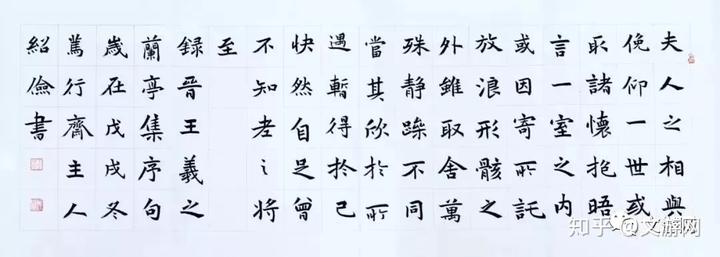 夫人之相與
俛仰一世或
取諸懷抱晤
言一室之内
或因寄所託
放浪形骸之
外雖取舍萬
殊静躁不同
當其欣於所
遇暫得於己
快然自足曾
不知老之將
至
録晉王羲之
蘭亭集序句
歲在戊戌冬
篤行齋主人
紹儉書
知乎 @文游网